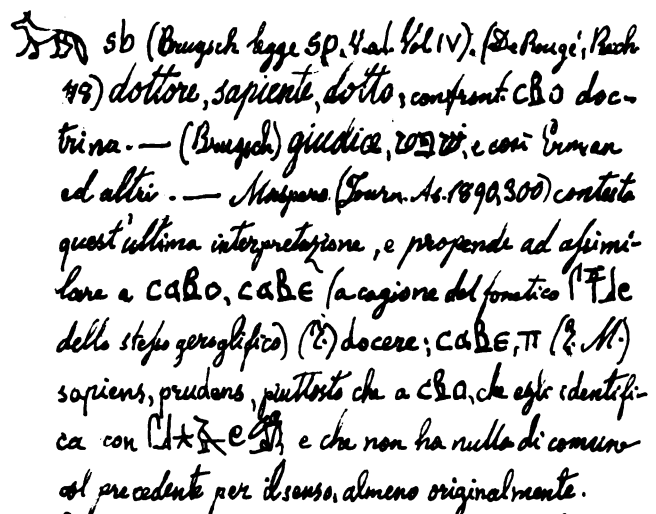 sb (Brugsch legge sp. V. al. Vol IV). (De Rougé, Rech
48) dottore, sapiente, dotto, confront. ⲥⲃⲟ doc-
trina. — (Brugsch) giudice, שפט, e così Erman
ed altri. — Maspero (Journ. As. 1890, 300) contesta
quest'ultima interpretazione, e propende ad assimi-
lare a ⲥⲁⲃⲟ, ⲥⲁⲃⲉ (a cagione del fonetico
dello stesso geroglifico) docere; ⲥⲁⲃⲉ, ⲡ
sapiens, prudens, piuttosto che a ⲥⲃⲟ, che egli identifi-
ca con e che non ha nulla di comune
col precedente per il senso, almeno originalmente.